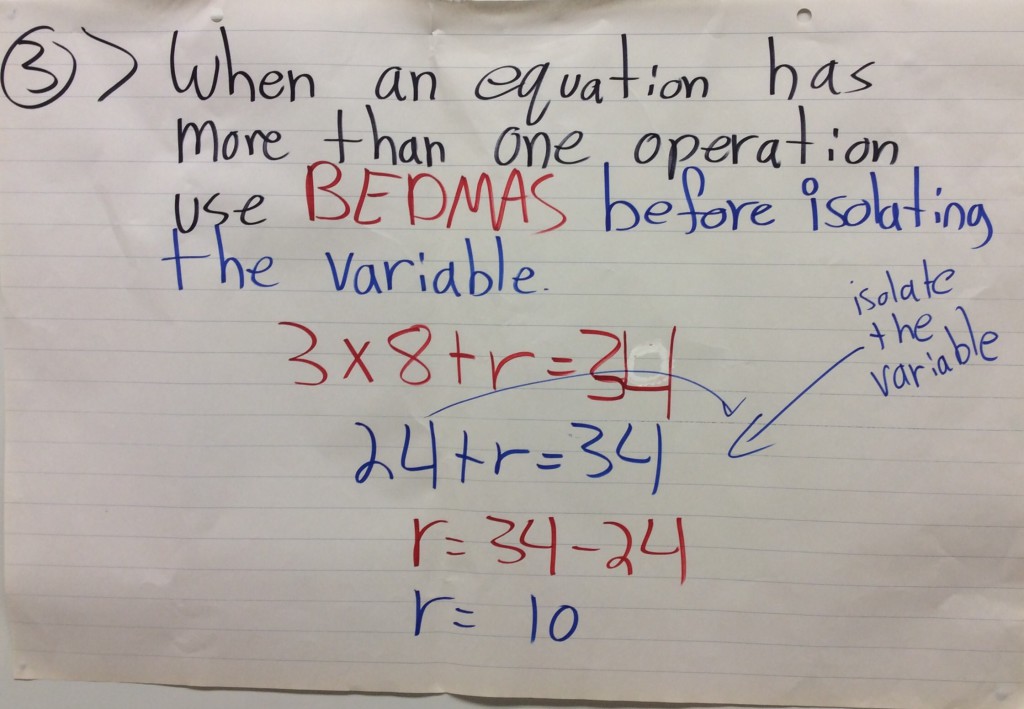 3> When an equation has
more than one operation
use BEDMAS before isolating
the variable.
isolate
the
variable
3x8+r=34
24+r=34
r=34-24
r= 10